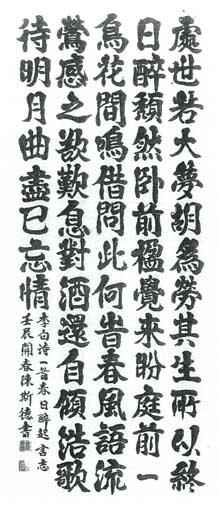 處世若大夢胡爲勞其生所以終
日醉頹然卧前楹覺來盼庭前一
鳥花間鳴借問此何旹春風語流
鶯感之欲歎息對酒還自傾浩歌
待明月曲盡已忘情
李白诗一首春日醉起言志
壬辰開春陳斯德書